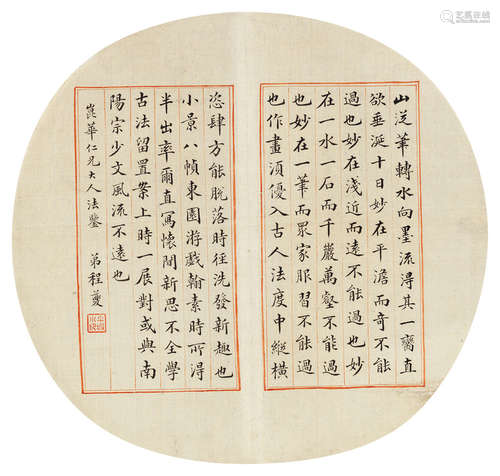 山從筆轉水向墨流得其一臠直
欲垂涎十日妙在平澹而奇不能
過也妙在淺近而遠不能過也妙
在一水一石而千巖萬壑不能過
也妙在一筆而眾家服習不能過
也作畫須優入古人法度中縱橫
恣肆方能脫落時徑洗發新趣也
小景八幀東園游戲翰素時所得
半出率爾直寫懷間新思不全學
古法留置案上時一展對或與南
陽宗少文風流不遠也
崑華仁兄大人法鑒 弟程夔